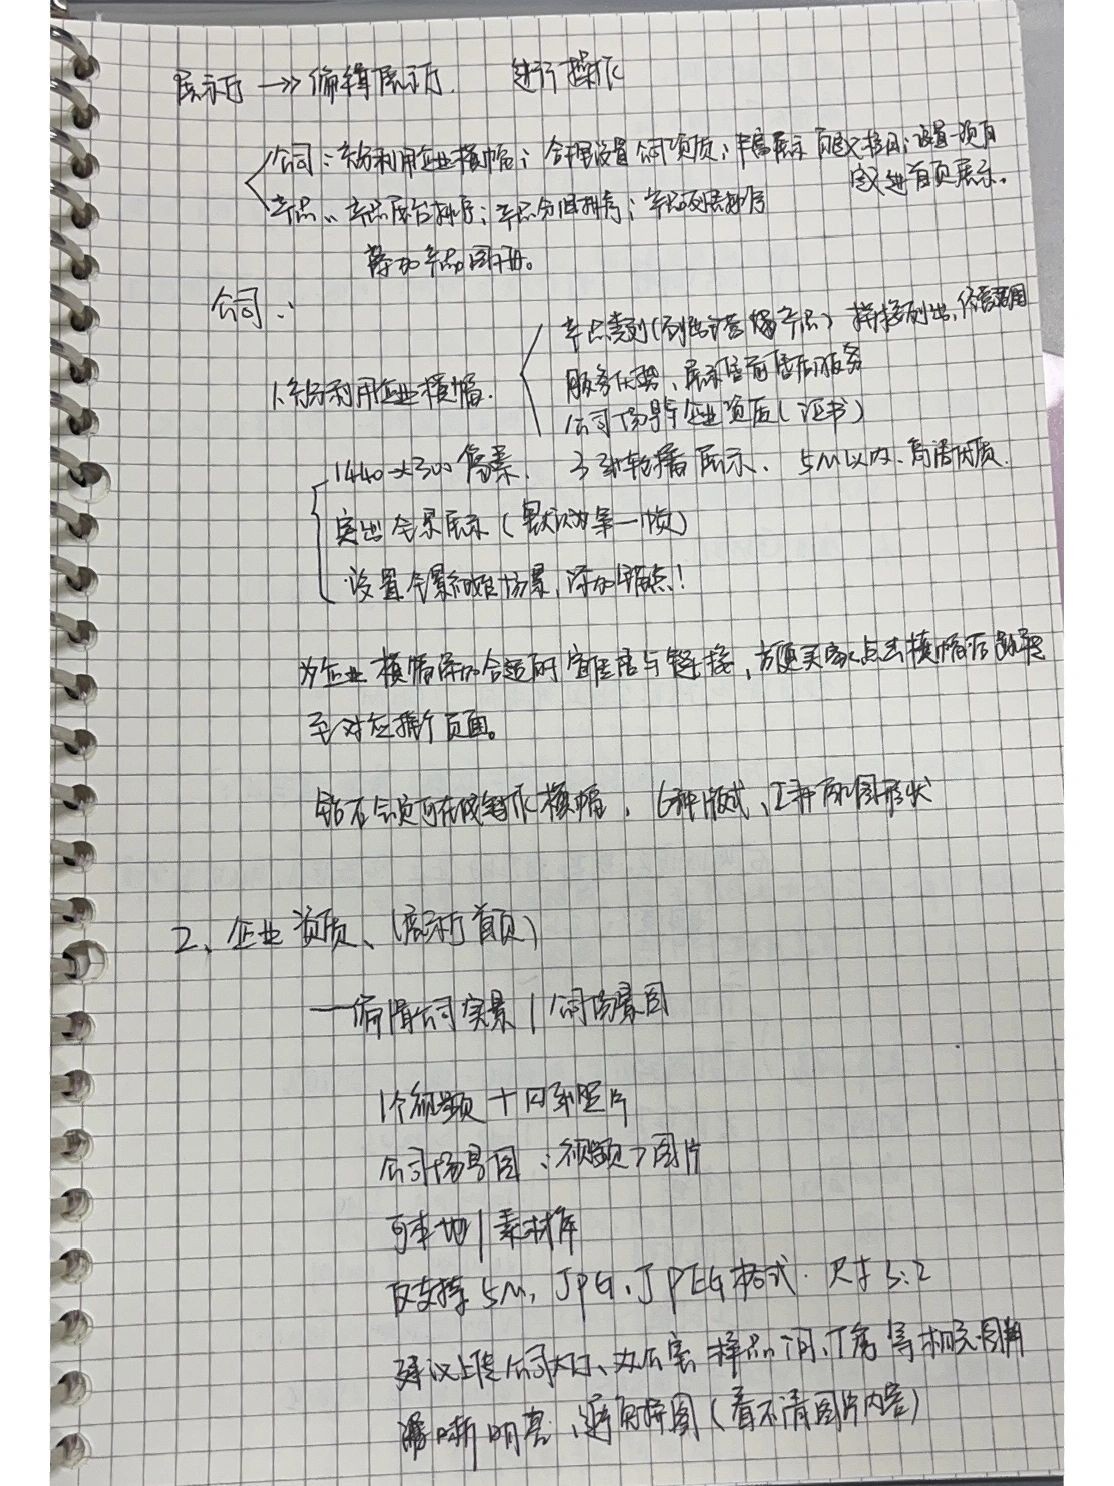 展示厅 →> 编辑展示厅. 进行操作
公司：充分利用企业横幅；合理设置公司资质；丰富展示自定义栏目；设置一项自
定义进首页展示。
产品：产品展台排序；产品分组推荐；产品列表排序
添加产品图册。
公司：
1、充分利用企业横幅.
产品类别(主营产品) 拼接列出,
服务优势、展示售前售后服务
公司场景与企业资质(证书)
1440×300像素. 3张轮播展示、5M以内、高清优质.
突出全景展示(默认为第一帧)
设置全景初始场景,添加锚点!
为企业横幅添加合适的宣传语与链接,方便买家点击横幅后跳转
至对应推广页面。
钻石会员可在线制作横幅,6种版式、2种配图形状
2、企业资质、(展示厅首页)
—编辑公司实景 | 公司场景图
1个视频+四张照片
公司场景图：视频>图片
可本地 | 素材库
仅支持5M, JPG、JPEG格式. 尺寸3:2
建议上传公司大门、办公室、样品间、厂房等相关图片
清晰明亮、避免拼图(看不清图片内容)